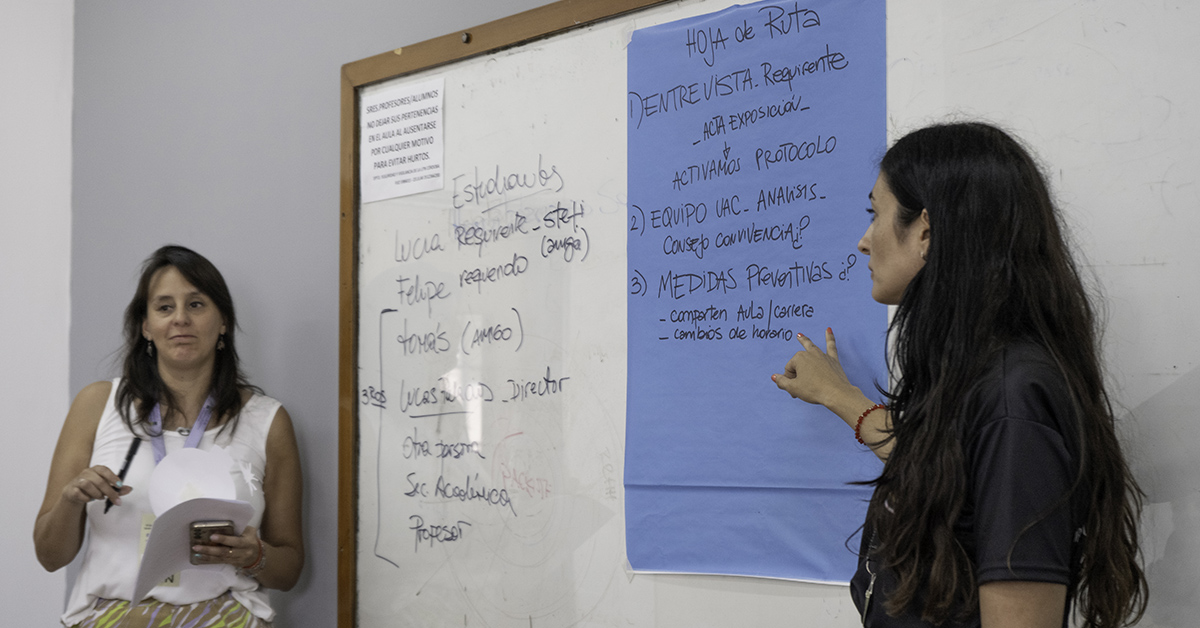 SRES. PROFESORES/ALUMNOS
NO DEJAR SUS PERTENENCIAS
EN EL AULA AL AUSENTARSE
POR CUALQUIER MOTIVO
PARA EVITAR HURTOS.
Estudiantes
Lucia Requirente - stefi
(amiga)
Felipe requerido
tomás (AMIGO)
3ROS
Lucas - Director
otra persona
Sec. Académica
Profesor
HOJA de Ruta
1) ENTREVISTA. Requirente
- ACTA EXPOSICIÓN -
↓
ACTIVAMOS PROTOCOLO
2) EQUIPO UAC - ANALISIS -
Consejo CONVIVENCIA¿?
3) MEDIDAS Preventivas ¿?
- comparten Aula/carrera
- cambios de horario